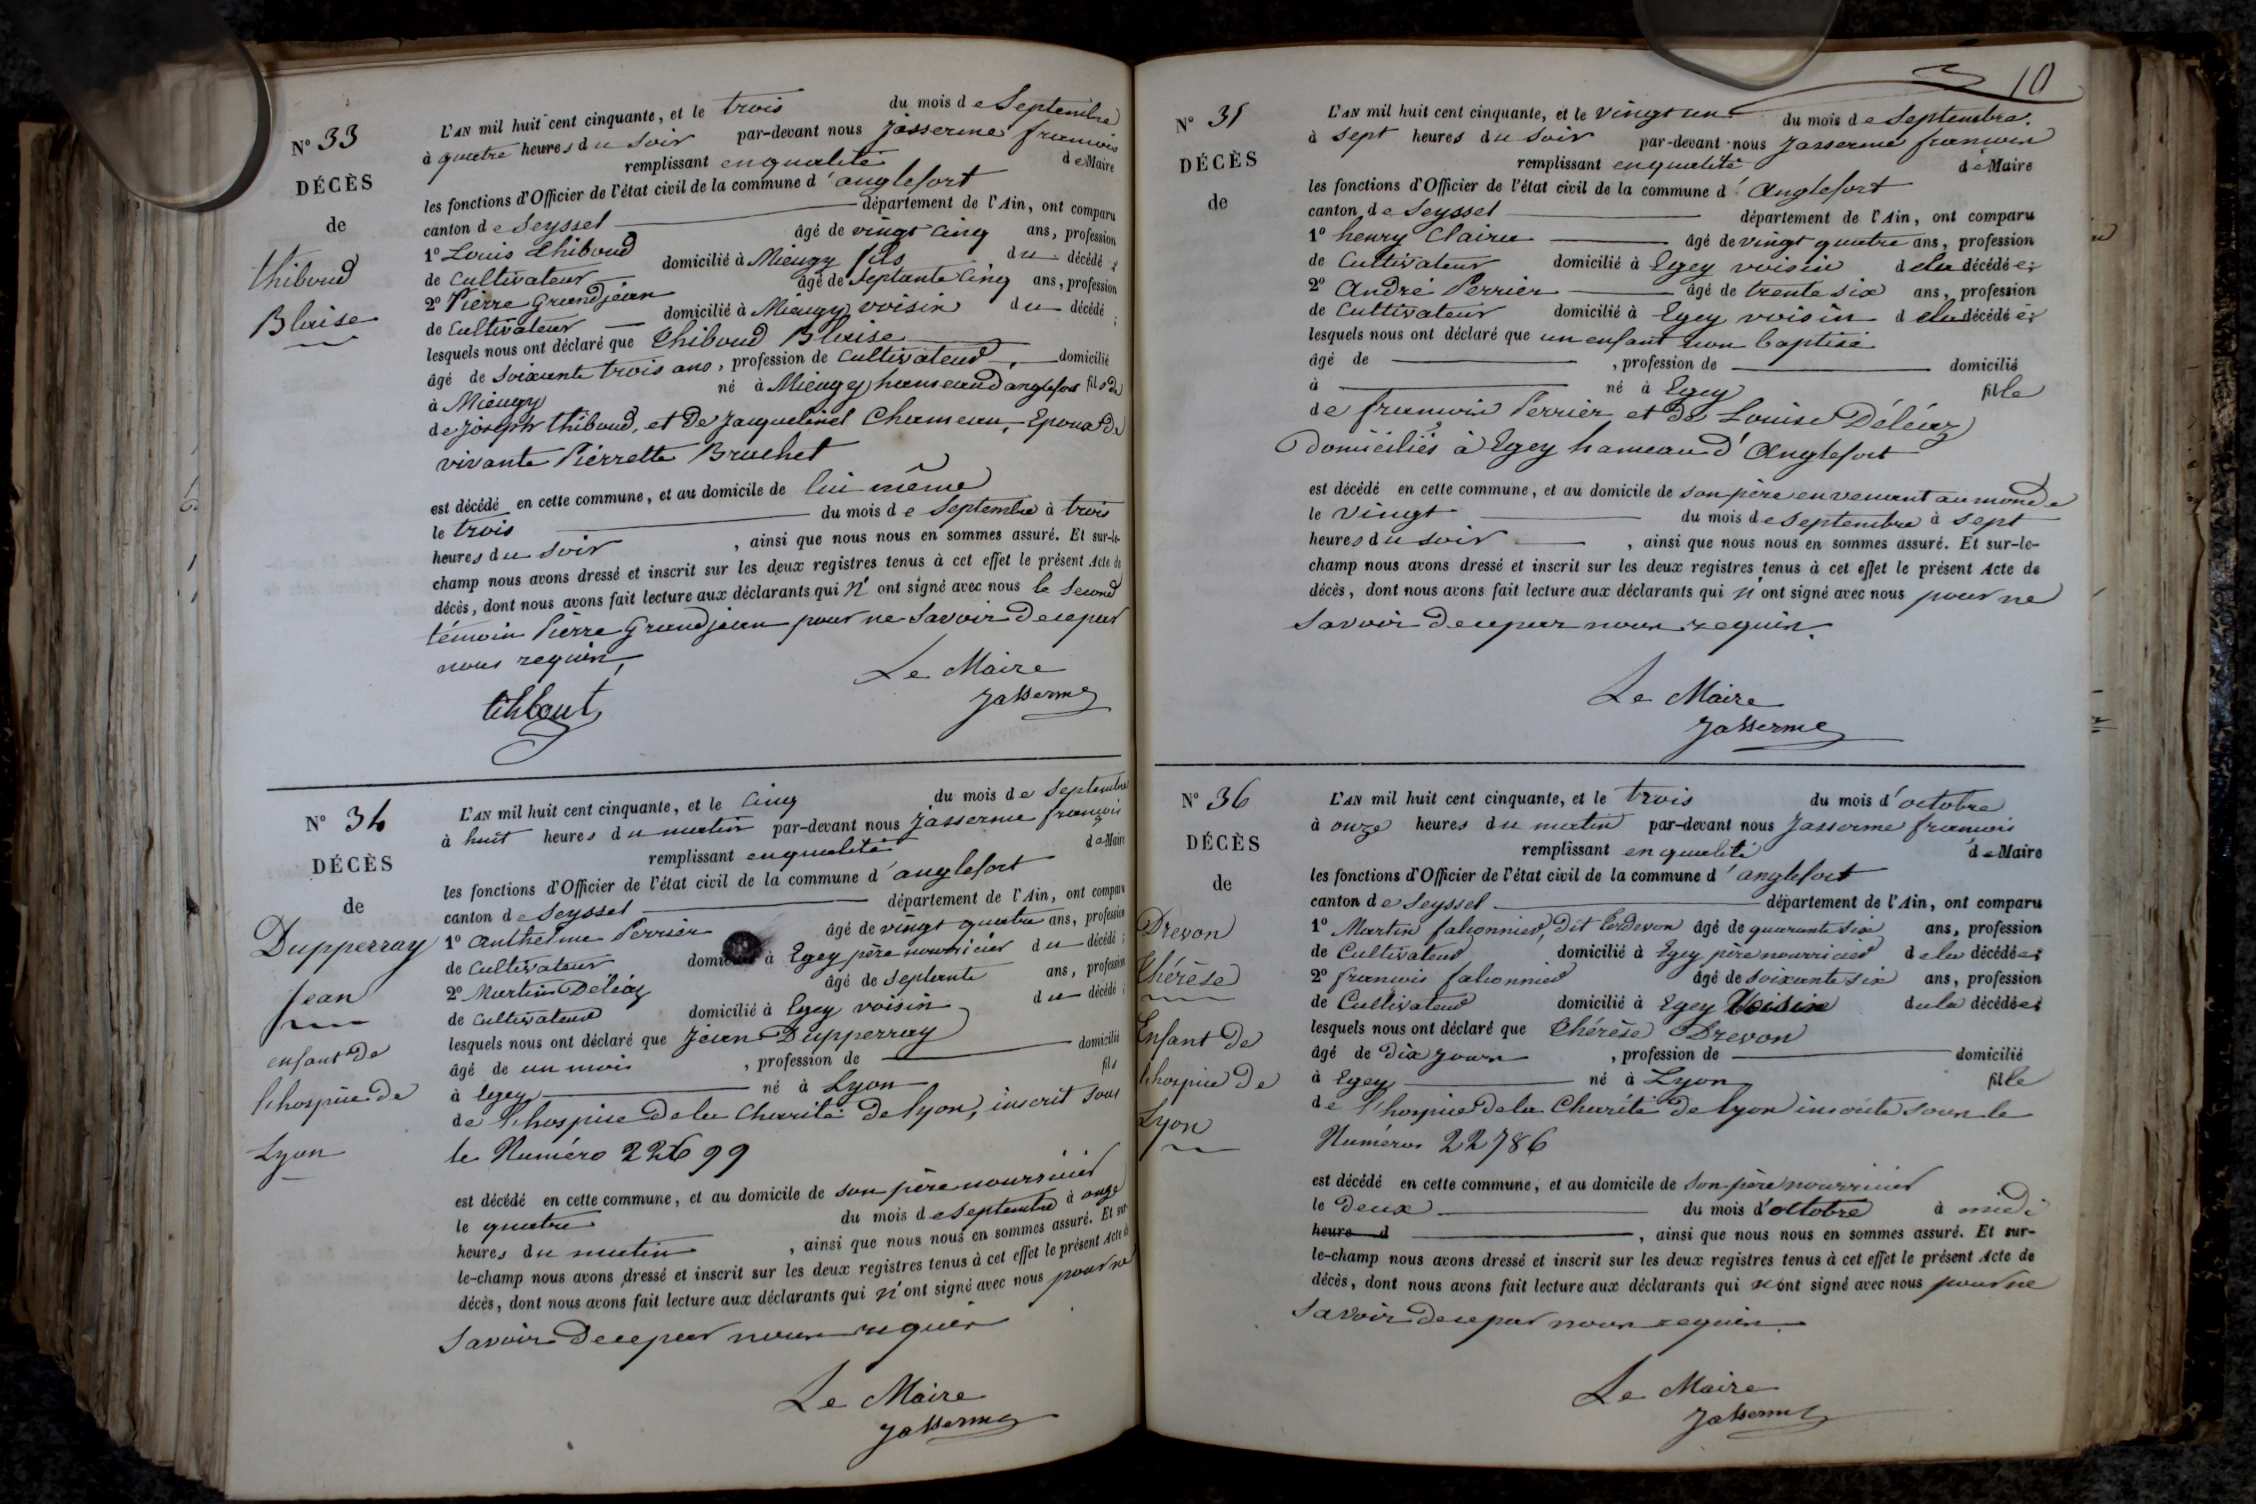 N° 33
DÉCÈS
de
Thiboud
Blaise
L'AN mil huit cent cinquante, et le trois du mois de Septembre
à quatre heures du soir par-devant nous Jasserme francois
remplissant en qualité de Maire
les fonctions d'Officier de l'état civil de la commune d'anglefort
canton de Seyssel département de l'Ain, ont comparu
1° Louis Thiboud âgé de vingt cinq ans, profession
de Cultivateur domicilié à Mieugy fils du décédé ;
2° Pierre Grandjean âgé de septante cinq ans, profession
de Cultivateur domicilié à Mieugy voisin du décédé ;
lesquels nous ont déclaré que Thiboud Blaise
âgé de soixante trois ans, profession de Cultivateur, domicilié
à Mieugy né à Mieugy hameau d'anglefort fils de
de Joseph Thiboud, et de Jacqueline Chameau, Epoux de
vivante Pierrette Bruchet
est décédé en cette commune, et au domicile de lui même
le trois du mois de Septembre à trois
heures du soir, ainsi que nous nous en sommes assuré. Et sur-le-
champ nous avons dressé et inscrit sur les deux registres tenus à cet effet le présent Acte de
décès, dont nous avons fait lecture aux déclarants qui n'ont signé avec nous le second
témoin Pierre Grandjean pour ne savoir de ce par
nous requin,
Le Maire
thibout
Jasserme
N° 34
DÉCÈS
de
Dupperray
Jean
enfant de
l'hospice de
Lyon
L'AN mil huit cent cinquante, et le Cinq du mois de Septembre
à huit heures du matin par-devant nous Jasserme françois
remplissant en qualité de Maire
les fonctions d'Officier de l'état civil de la commune d'anglefort
canton de Seyssel département de l'Ain, ont comparu
1° Anthelme Perrier âgé de vingt quatre ans, profession
de Cultivateur domicilié à Egey père nourricier du décédé ;
2° Martin Déléaz âgé de septante ans, profession
de Cultivateur domicilié à Egey voisin du décédé ;
lesquels nous ont déclaré que Jean Dupperray
âgé de un mois, profession de domicilié
à Egey né à Lyon fils
de l'hospice de la Charité de Lyon, inscrit sous
le Numéro 22699
est décédé en cette commune, et au domicile de son père nourricier
le quatre du mois de Septembre à onze
heures du matin, ainsi que nous nous en sommes assuré. Et sur-
le-champ nous avons dressé et inscrit sur les deux registres tenus à cet effet le présent Acte de
décès, dont nous avons fait lecture aux déclarants qui n'ont signé avec nous pour ne
savoir de ce par nous requin
Le Maire
Jasserme
10
N° 35
DÉCÈS
de
L'AN mil huit cent cinquante, et le vingt un du mois de Septembre.
à sept heures du soir par-devant nous Jasserme francois
remplissant en qualité de Maire
les fonctions d'Officier de l'état civil de la commune d'Anglefort
canton de Seyssel département de l'Ain, ont comparu
1° henry Claire âgé de vingt quatre ans, profession
de Cultivateur domicilié à Egey voisin de la décédée ;
2° André Perrier âgé de trente six ans, profession
de Cultivateur domicilié à Egey voisin de la décédée ;
lesquels nous ont déclaré que un enfant non baptisé
âgé de , profession de domicilié
à né à Egey fille
de francois Perrier et de Louise Déléaz
domiciliés à Egey hameau d'Anglefort
est décédé en cette commune, et au domicile de son père en venant au monde
le vingt du mois de Septembre à sept
heures du soir, ainsi que nous nous en sommes assuré. Et sur-le-
champ nous avons dressé et inscrit sur les deux registres tenus à cet effet le présent Acte de
décès, dont nous avons fait lecture aux déclarants qui n'ont signé avec nous pour ne
savoir de ce par nous requin.
Le Maire
Jasserme
N° 36
DÉCÈS
de
Drevon
Thérèse
Enfant de
l'hospice de
Lyon
L'AN mil huit cent cinquante, et le trois du mois d'octobre
à onze heures du matin par-devant nous Jasserme francois
remplissant en qualité de Maire
les fonctions d'Officier de l'état civil de la commune d'anglefort
canton de Seyssel département de l'Ain, ont comparu
1° Martin falionnier, dit âgé de quarante six ans, profession
de Cultivateur domicilié à Egey père nourricier de la décédée ;
2° francois falionnier âgé de soixante six ans, profession
de Cultivateur domicilié à Egey Voisin de la décédée ;
lesquels nous ont déclaré que Thérèse Drevon
âgé de dix jours, profession de domicilié
à Egey né à Lyon fille
de l'hospice de la Charité de Lyon inscrite sous le
Numéro 22786
est décédé en cette commune, et au domicile de son père nourricier
le deux du mois d'octobre à midi
heure d , ainsi que nous nous en sommes assuré. Et sur-
le-champ nous avons dressé et inscrit sur les deux registres tenus à cet effet le présent Acte de
décès, dont nous avons fait lecture aux déclarants qui n'ont signé avec nous pour ne
savoir de ce par nous requin.
Le Maire
Jasserme